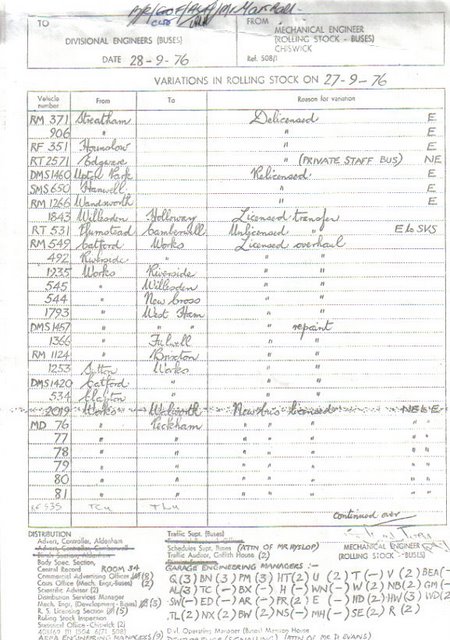 TO
DIVISIONAL ENGINEERS (BUSES)
DATE 28-9-76
FROM
MECHANICAL ENGINEER
(ROLLING STOCK - BUSES)
CHISWICK
Ref. 508/1
VARIATIONS IN ROLLING STOCK ON 27-9-76
Vehicle number From To Reason for variation
RM 371 Streatham Delicensed E
906 " " E
RF 351 Hounslow " E
RT 2571 Edgware " (PRIVATE STAFF BUS) NE
DMS 1460 Upton Park Relicensed E
SMS 650 Hanwell " E
RM 1266 Wandsworth " E
1843 Willesden Holloway Licensed transfer
RT 531 Plumstead Camberwell Unlicensed " E to SVS
RM 549 Catford Works Licensed overhaul
492 Riverside " " "
1235 Works Riverside " "
545 " Willesden " "
544 " New Cross " "
1793 " West Ham " "
DMS 1457 " " " repaint
1366 " Fulwell " "
RM 1124 " Brixton " "
1253 Sutton Works " "
DMS 1420 Catford " " "
534 Clapton " " "
2019 Works Walworth New bus licensed NE to E
MD 76 " Peckham " " " " "
77 " " " " " " "
78 " " " " " " "
79 " " " " " " "
80 " " " " " " "
81 " " " " " " "
continued over
DISTRIBUTION
Advert. Controller, Aldenham
Body Spec. Section,
Central Record ROOM 34
Commercial Advertising Officer (8)
Costs Office (Mech. Engr.-Buses) (2)
Scientific Adviser (2)
Distribution Services Manager
Mech. Engr. (Development-Buses) (5)
R. S. Licensing Section (5)
Rolling Stock Inspection
Statistical Officer (2)
Traffic Supt. (Buses)
Schedules Supt. Buses (ATTN OF MR HYSLOP)
Traffic Auditor, Griffith House (2)
MECHANICAL ENGINEER
(ROLLING STOCK - BUSES)
GARAGE ENGINEERING MANAGERS:-
Q (3) BN (3) PM (3) HT (2) U (2) T (-) V (2)
AL (3) TC (-) BX (-) H (-) WN (-) W (2) NB (2) GM (-)
SW (-) ED (-) AR (-) PR (2) E (-) HD (2) HW (3)
TL (2) NX (2) BW (2) NS (-) MH (-) SE (2) R (2)
Divl. Operating Manager (Buses)